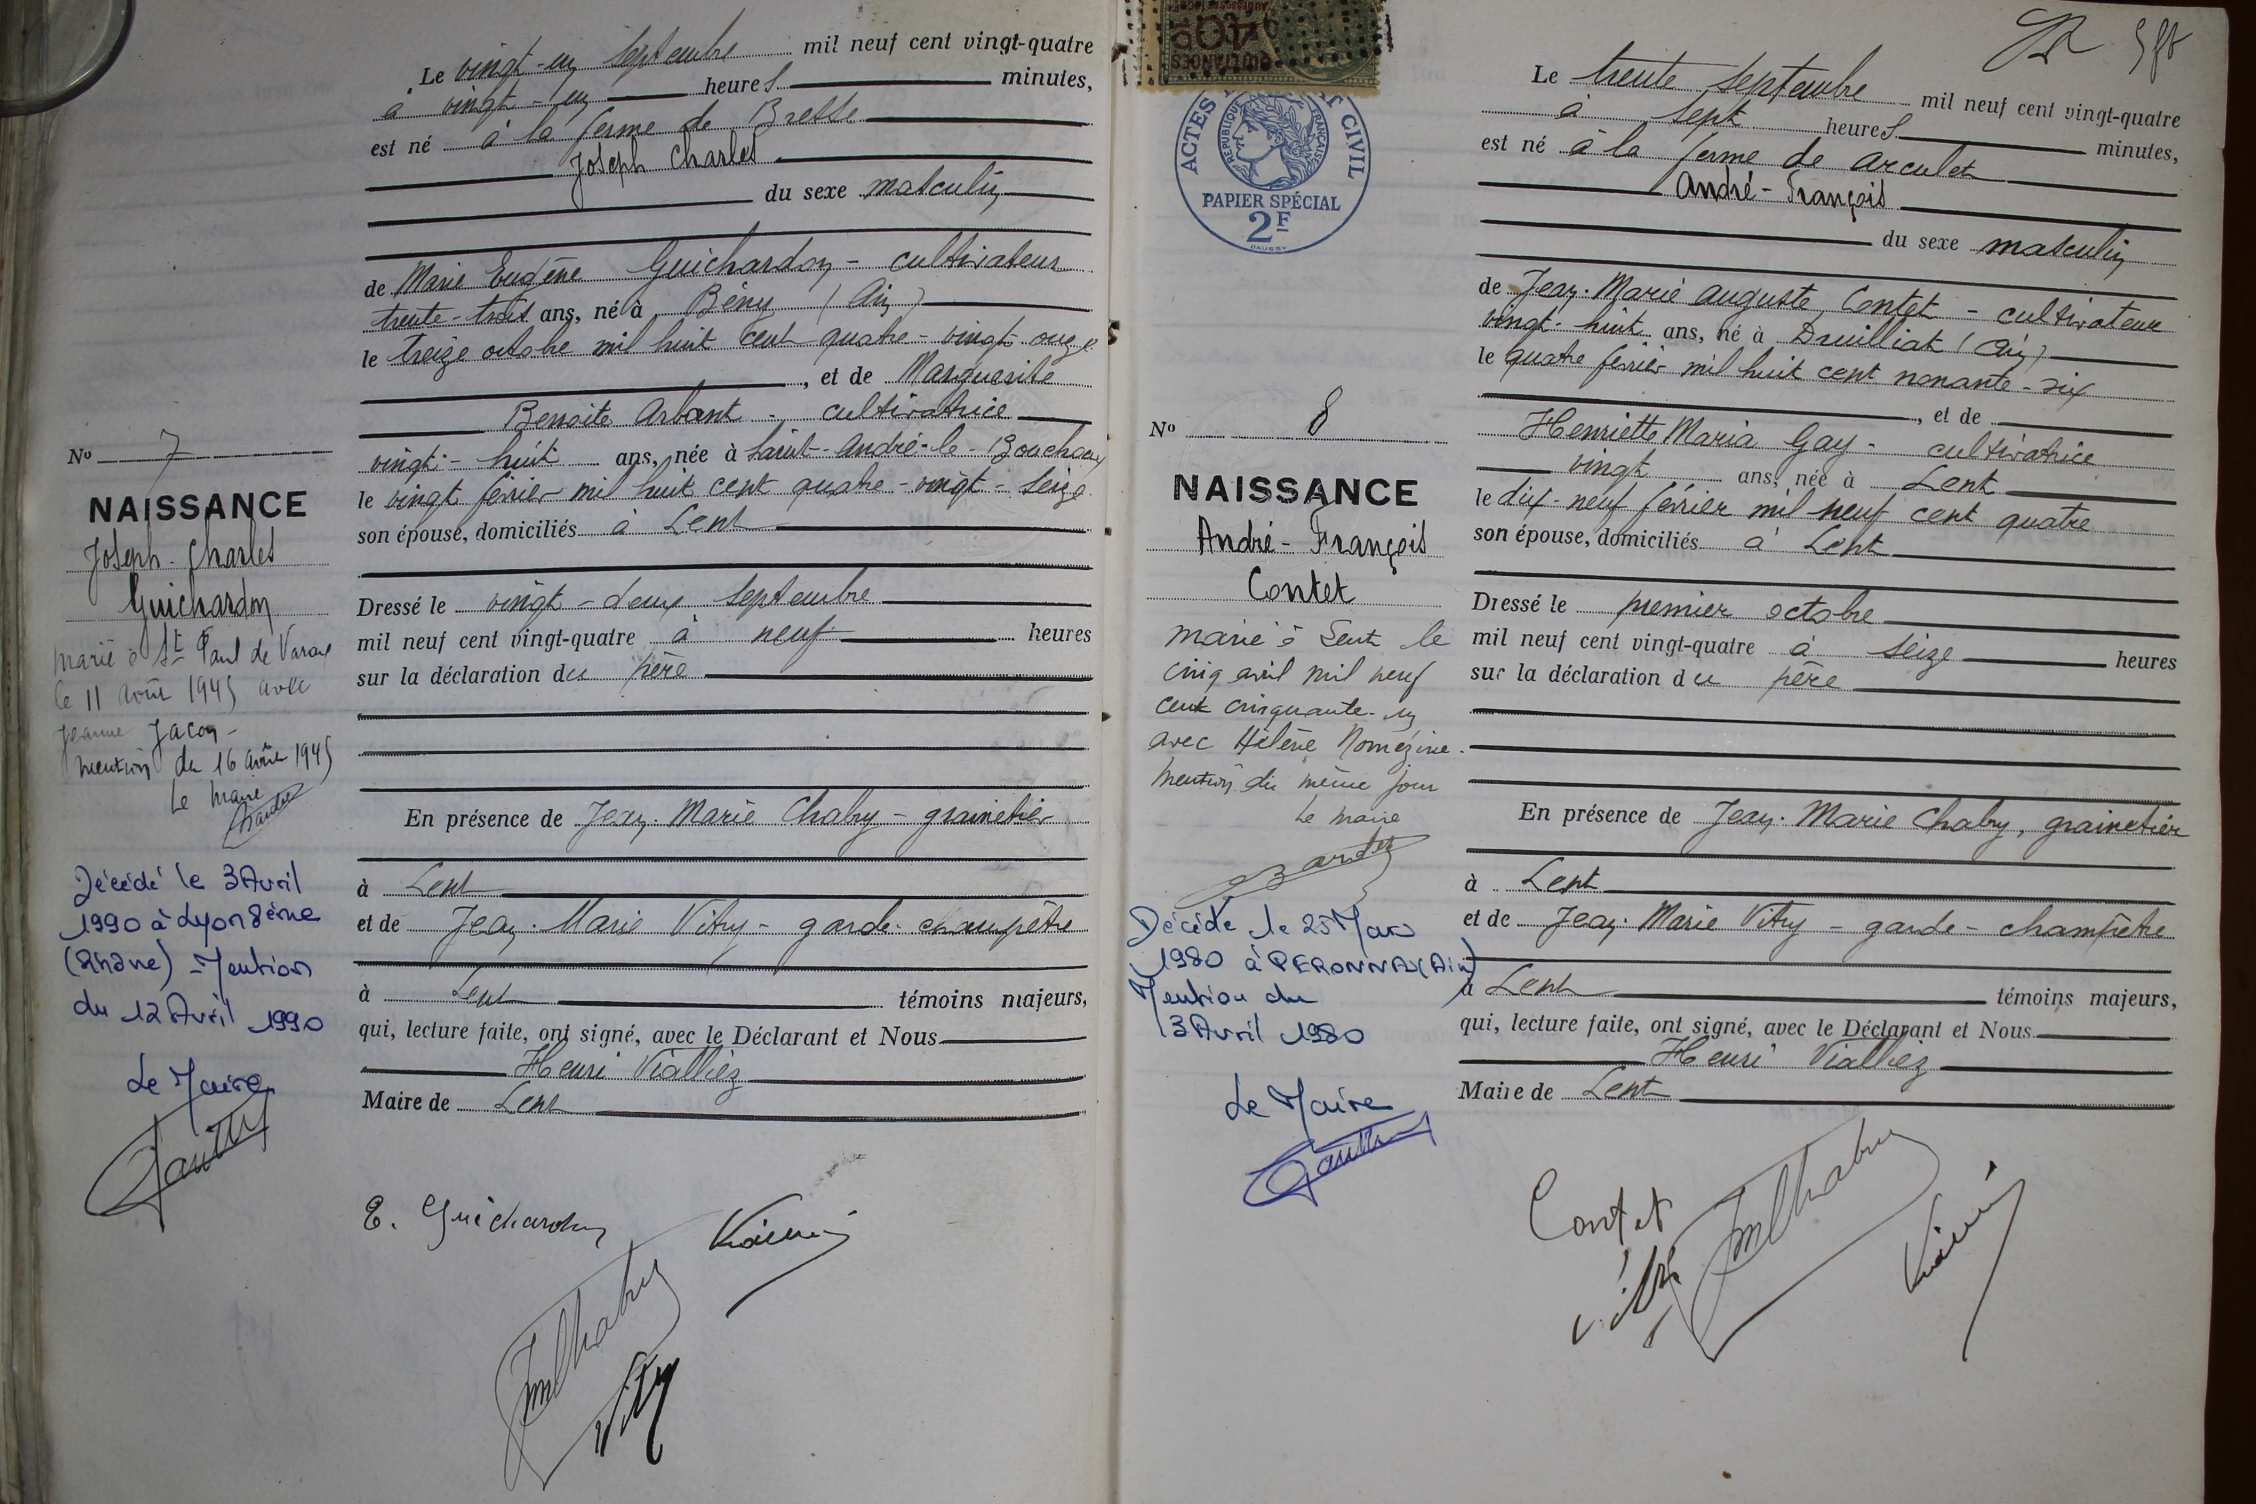 Le vingt-un septembre mil neuf cent vingt-quatre
à vingt-un heures minutes,
est né à la ferme de Bresse
Joseph Charles
du sexe masculin
de Marie Eugène Guichardon - cultivateur
trente-trois ans, né à Bény (Ain)
le treize octobre mil huit cent quatre-vingt-onze
, et de Marguerite
Benoite Arbant - cultivatrice
vingt-huit ans, née à Saint-André-le-Bouchoux
le vingt février mil huit cent quatre-vingt-seize
son épouse, domiciliés à Lent
Dressé le vingt-deux septembre
mil neuf cent vingt-quatre à neuf heures
sur la déclaration du père
En présence de Jean-Marie Chabry - grainetier
à Lent
et de Jean-Marie Vitry - garde-champêtre
à Lent témoins majeurs,
qui, lecture faite, ont signé, avec le Déclarant et Nous
Henri Vialliez
Maire de Lent
E. Guichardon
Vitry
No 7
NAISSANCE
Joseph-Charles
Guichardon
marié à St Paul de Varax
le 11 août 1945 avec
Jeanne Jacon -
mention du 16 août 1945
Le maire
Décédé le 3 Avril
1990 à Lyon 8ème
(Rhône) - Mention
du 12 Avril 1990
Le Maire
ACTES CIVIL
RÉPUBLIQUE FRANÇAISE
PAPIER SPÉCIAL
2F
DAUSSY
QUITTANCES
No 8
NAISSANCE
André-François
Contet
marié à Lent le
cinq avril mil neuf
cent cinquante-un
avec Hélène Nomézine.
Mention du même jour
Le maire
Décédé le 25 Mars
1980 à PERONNAS (Ain)
Mention du
3 Avril 1980
Le Maire
Le trente septembre mil neuf cent vingt-quatre
à sept heures minutes,
est né à la ferme de Arculet
André-François
du sexe masculin
de Jean-Marie Auguste Contet - cultivateur
vingt-huit ans, né à Druilliat (Ain)
le quatre février mil huit cent nonante-six
, et de
Henriette Maria Gay - cultivatrice
vingt ans, née à Lent
le dix-neuf février mil neuf cent quatre
son épouse, domiciliés à Lent
Dressé le premier octobre
mil neuf cent vingt-quatre à seize heures
sur la déclaration du père
En présence de Jean-Marie Chabry, grainetier
à Lent
et de Jean-Marie Vitry - garde-champêtre
à Lent témoins majeurs,
qui, lecture faite, ont signé, avec le Déclarant et Nous
Henri Vialliez
Maire de Lent
Contet